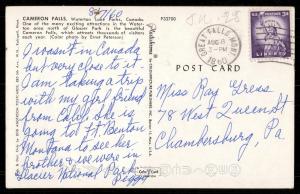 CAMERON FALLS, Waterton Lakes Park, Canada.
One of the many exciting attractions in the Water-
ton area north of Glacier Park is the beautiful
Cameron Falls, which attracts thousands of visitors
each year. (Color photo by Ernst Peterson)
P33700
8/7/60
I wasnt in Canada
but very close to it.
I am taking a trip
with my girl friend
from Calif. She is
going to Ft. Benton
Montana to see her
brother & we were in
Glacier National Park.
Peggy
POST CARD
GREAT FALLS, MONT.
AUG 8
7-PM
1960
3¢
Miss Ray Gress
78 West Queen St
Chambersburg, Pa